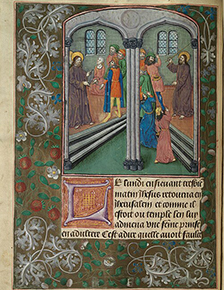 E lundi ensuivant tresto
matin ihesus retourna en
iherusalem et comme il
estoit ou temple len lui
admena une feme prinse
en adultere Cest adire quelle avoit faulse